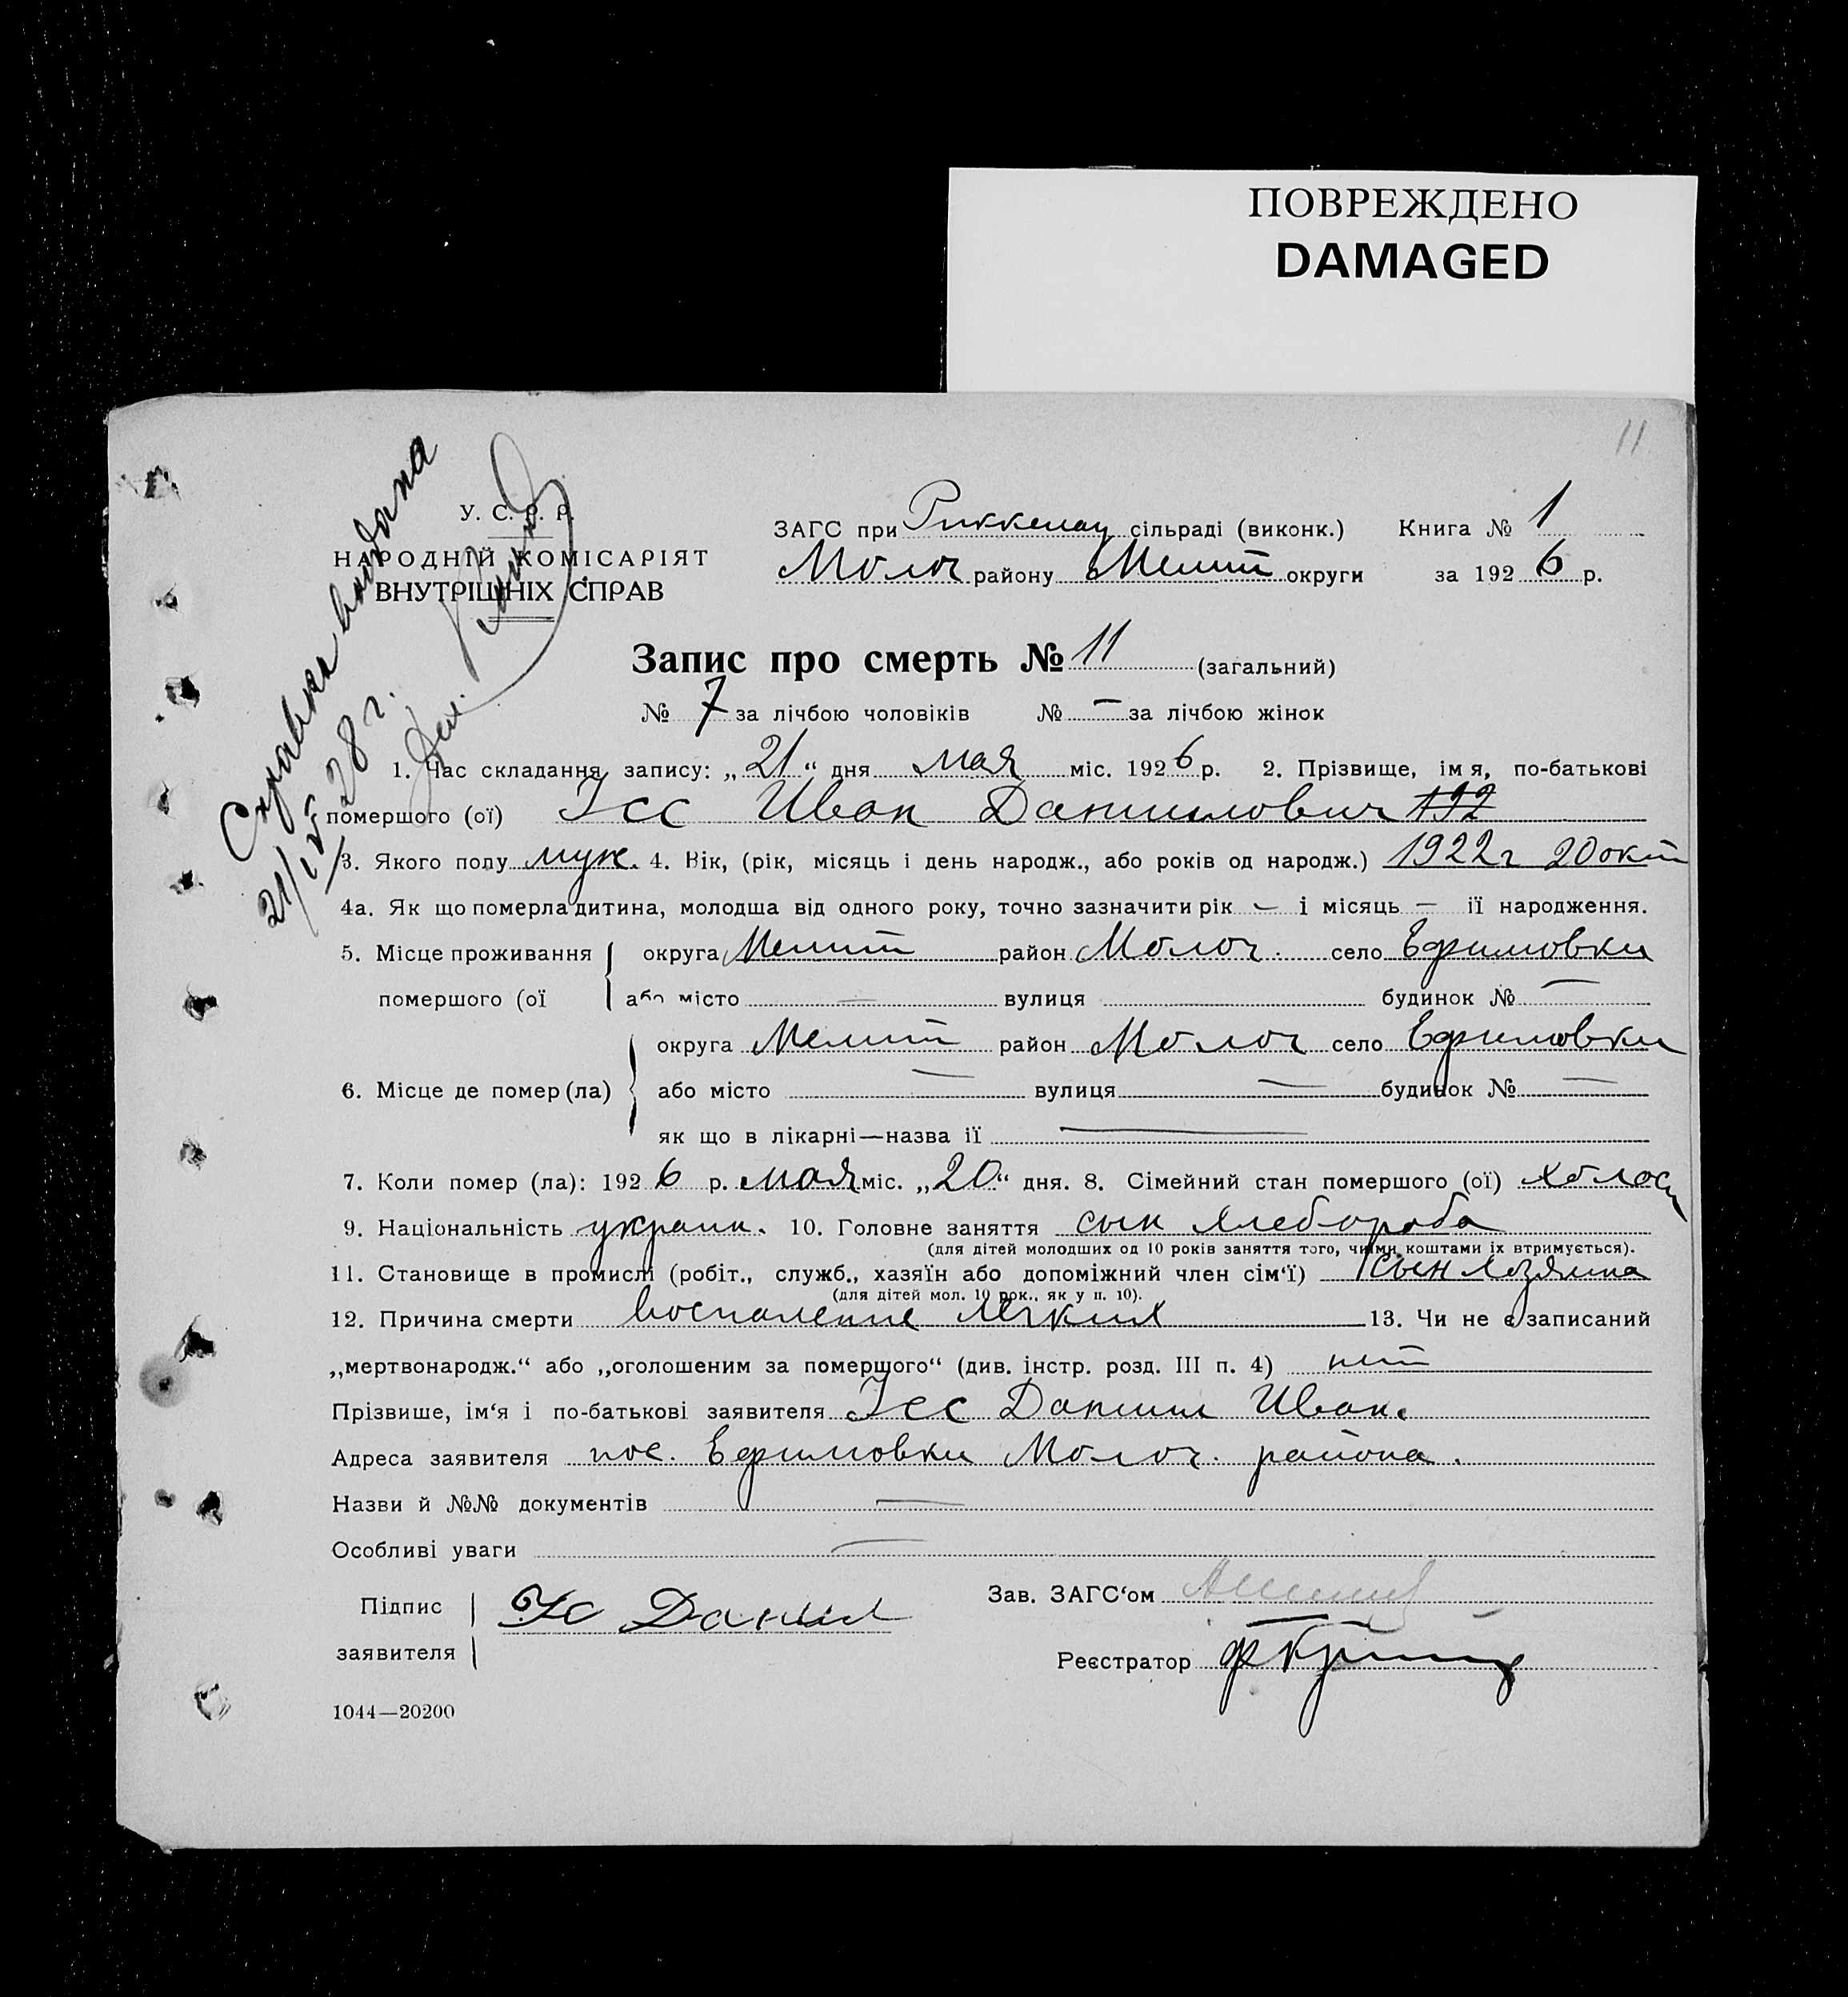 ПОВРЕЖДЕНО
DAMAGED
11
Справка выдана
21/IV 28 г.
У. С. Р. Р.
НАРОДНІЙ КОМІСАРІЯТ
ВНУТРІШНІХ СПРАВ
ЗАГС при Риккенау сільраді (виконк.) Книга № 1
Молоч району Мелит округи за 1926 р.
Запис про смерть № 11 (загальний)
№ 7 за лічбою чоловіків № — за лічбою жінок
1. Час складання запису: „21“ дня мая міс. 1926 р. 2. Прізвище, імя, по-батькові
помершого (ої) Гесс Иван Данилович 192
3. Якого полу муж. 4. Вік, (рік, місяць і день народж., або років од народж.) 1922 г 20 окт
4а. Як що померла дитина, молодша від одного року, точно зазначити рік — і місяць — ії народження.
5. Місце проживання округа Мелит район Молоч. село Ефимовки
помершого (ої або місто — вулиця будинок № —
округа Мелит район Молоч село Ефимовки
6. Місце де помер (ла) або місто — вулиця — будинок № —
як що в лікарні—назва ії —
7. Коли помер (ла): 1926 р. мая міс. „20“ дня. 8. Сімейний стан помершого (ої) холост
9. Національність украин. 10. Головне заняття сын хлебороба
(для дітей молодших од 10 років заняття того, чиїми коштами іх втримується).
11. Становище в промислі (робіт., служб., хазяїн або допоміжний член сім‘ї) сын хозяина
(для дітей мол. 10 рок., як у п. 10).
12. Причина смерти воспаление легких 13. Чи не є записаний
„мертвонародж.“ або „оголошеним за помершого“ (див. інстр. розд. III п. 4) нет
Прізвише, ім‘я і по-батькові заявителя Гесс Данил Иван.
Адреса заявителя пос. Ефимовки Молоч. района.
Назви й №№ документів —
Особливі уваги —
Підпис Данил Зав. ЗАГС‘ом
заявителя Реєстратор
1044—20200